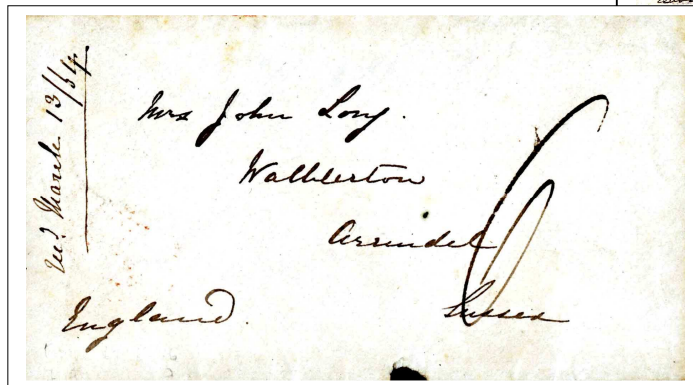 Recd March 13/54
Mrs John Long.
Walblerton
Arrundel
Sussex
England.
6